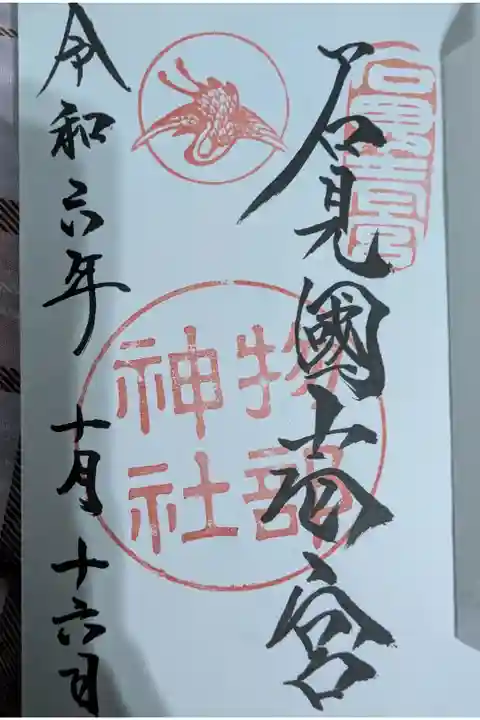 石見國壹宮
物部
神社
令和六年 十月 十六日